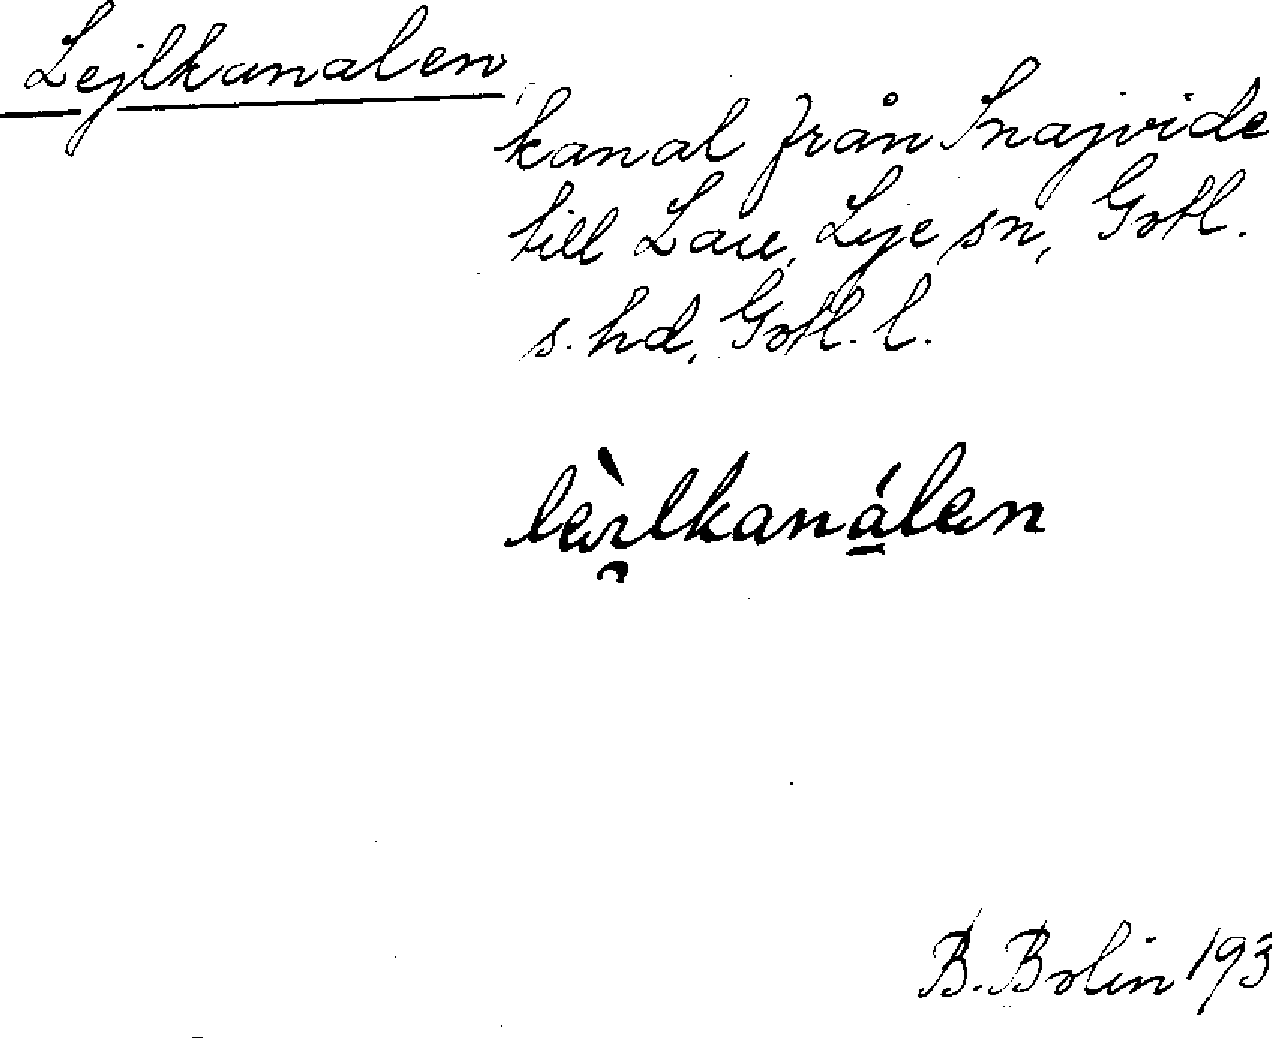 Lejlkanalen
kanal från Snajvide
till Lau, Lye sn, Gotl.
s. hd, Gotl. l.
lèi̯lkaná̲len
B. Bolin 193